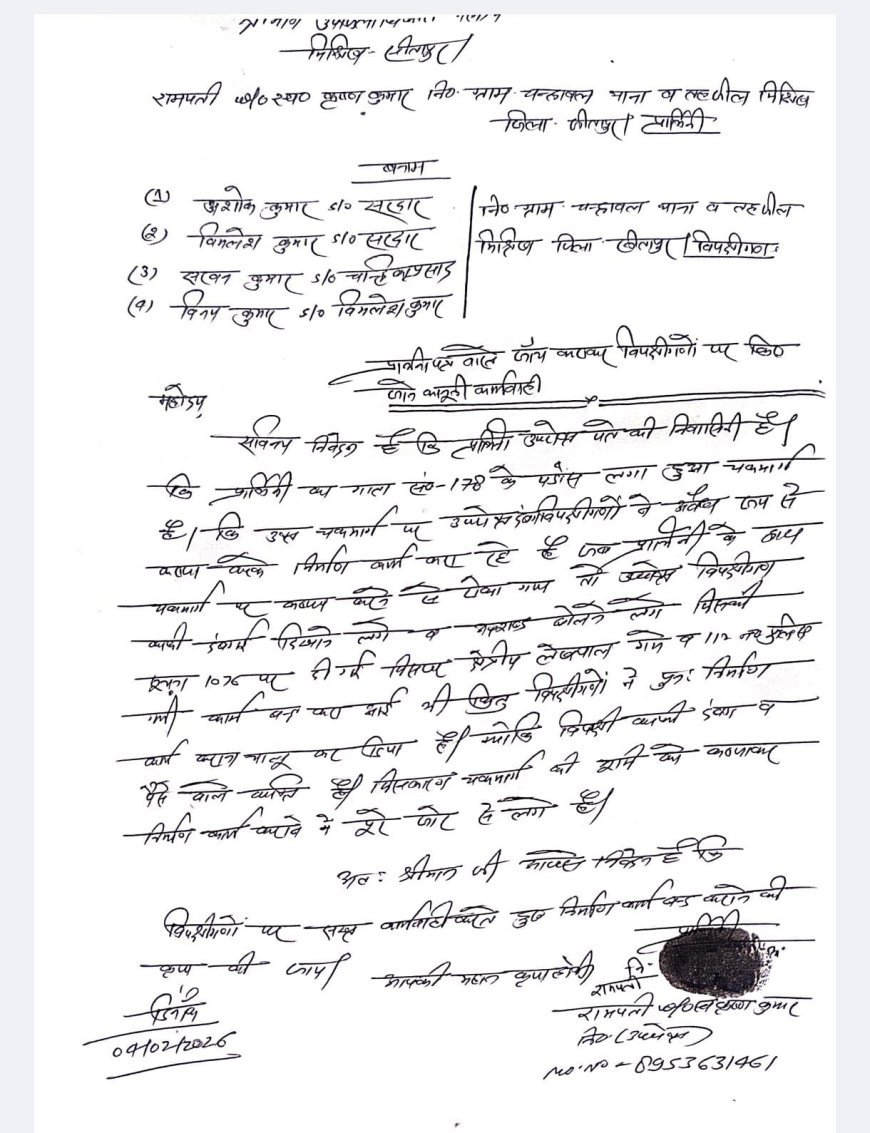 श्रीमान उपजिलाधिकारी महोदय
मिश्रिख - सीतापुर।
रामपती w/o स्व० कृष्ण कुमार नि०. ग्राम. चन्द्रावल थाना व तहसील मिश्रिख
जिला. सीतापुर। प्रार्थिनी
बनाम
(1) अशोक कुमार s/o सरदार
(2) विमलेश कुमार s/o सरदार
(3) सरवन कुमार s/o चन्द्रिका प्रसाद
(4) विनय कुमार s/o विमलेश कुमार
नि० ग्राम. चन्द्रावल थाना व तहसील
मिश्रिख जिला. सीतापुर। विपक्षीगण
प्रार्थना पत्र वास्ते जाँच कराकर विपक्षीगणों पर किए
जाने कानूनी कार्यवाही
महोदय
सविनय निवेदन है कि प्रार्थिनी उपरोक्त पते की निवासिनी है।
कि प्रार्थिनी का गाटा सं०-178 के पड़ोस लगा हुआ चकमार्ग
है। कि उक्त चकमार्ग पर उपरोक्त विपक्षीगणों ने अवैध रूप से
कब्जा करके निर्माण कार्य करा रहे है जब प्रार्थिनी के द्वारा
चकमार्ग पर कब्जा करने से रोका गया तो उपरोक्त विपक्षीगण
काफी दिखाने लगे व बोलने लगे जिसकी
सूचना 1076 पर दी गई जिसपर क्षेत्रीय लेखपाल गये व 112 नं० पुलिस
गयी कार्य बन्द करा आई थी किन्तु विपक्षीगणों ने पुनः निर्माण
कार्य कराना चालू कर दिया है। क्योकि विपक्षी काफी दबंग व
पैसे वाले व्यक्ति है। जिसकारण चकमार्ग की भूमि को कब्जाकर
निर्माण कार्य कराने में पूरे जोर से लगे है।
अतः श्रीमान जी से निवेदन है कि
विपक्षीगणों पर सख्त कार्यवाही करते हुए निर्माण कार्य बन्द कराने की
कृपा की जाय। आपकी महान कृपा होगी
प्रार्थिनी
नि०
रामपती
रामपती w/o स्व० कृष्ण कुमार
नि० (उपरोक्त)
mo. no - 8953631461
दिनाँक
04/02/2026